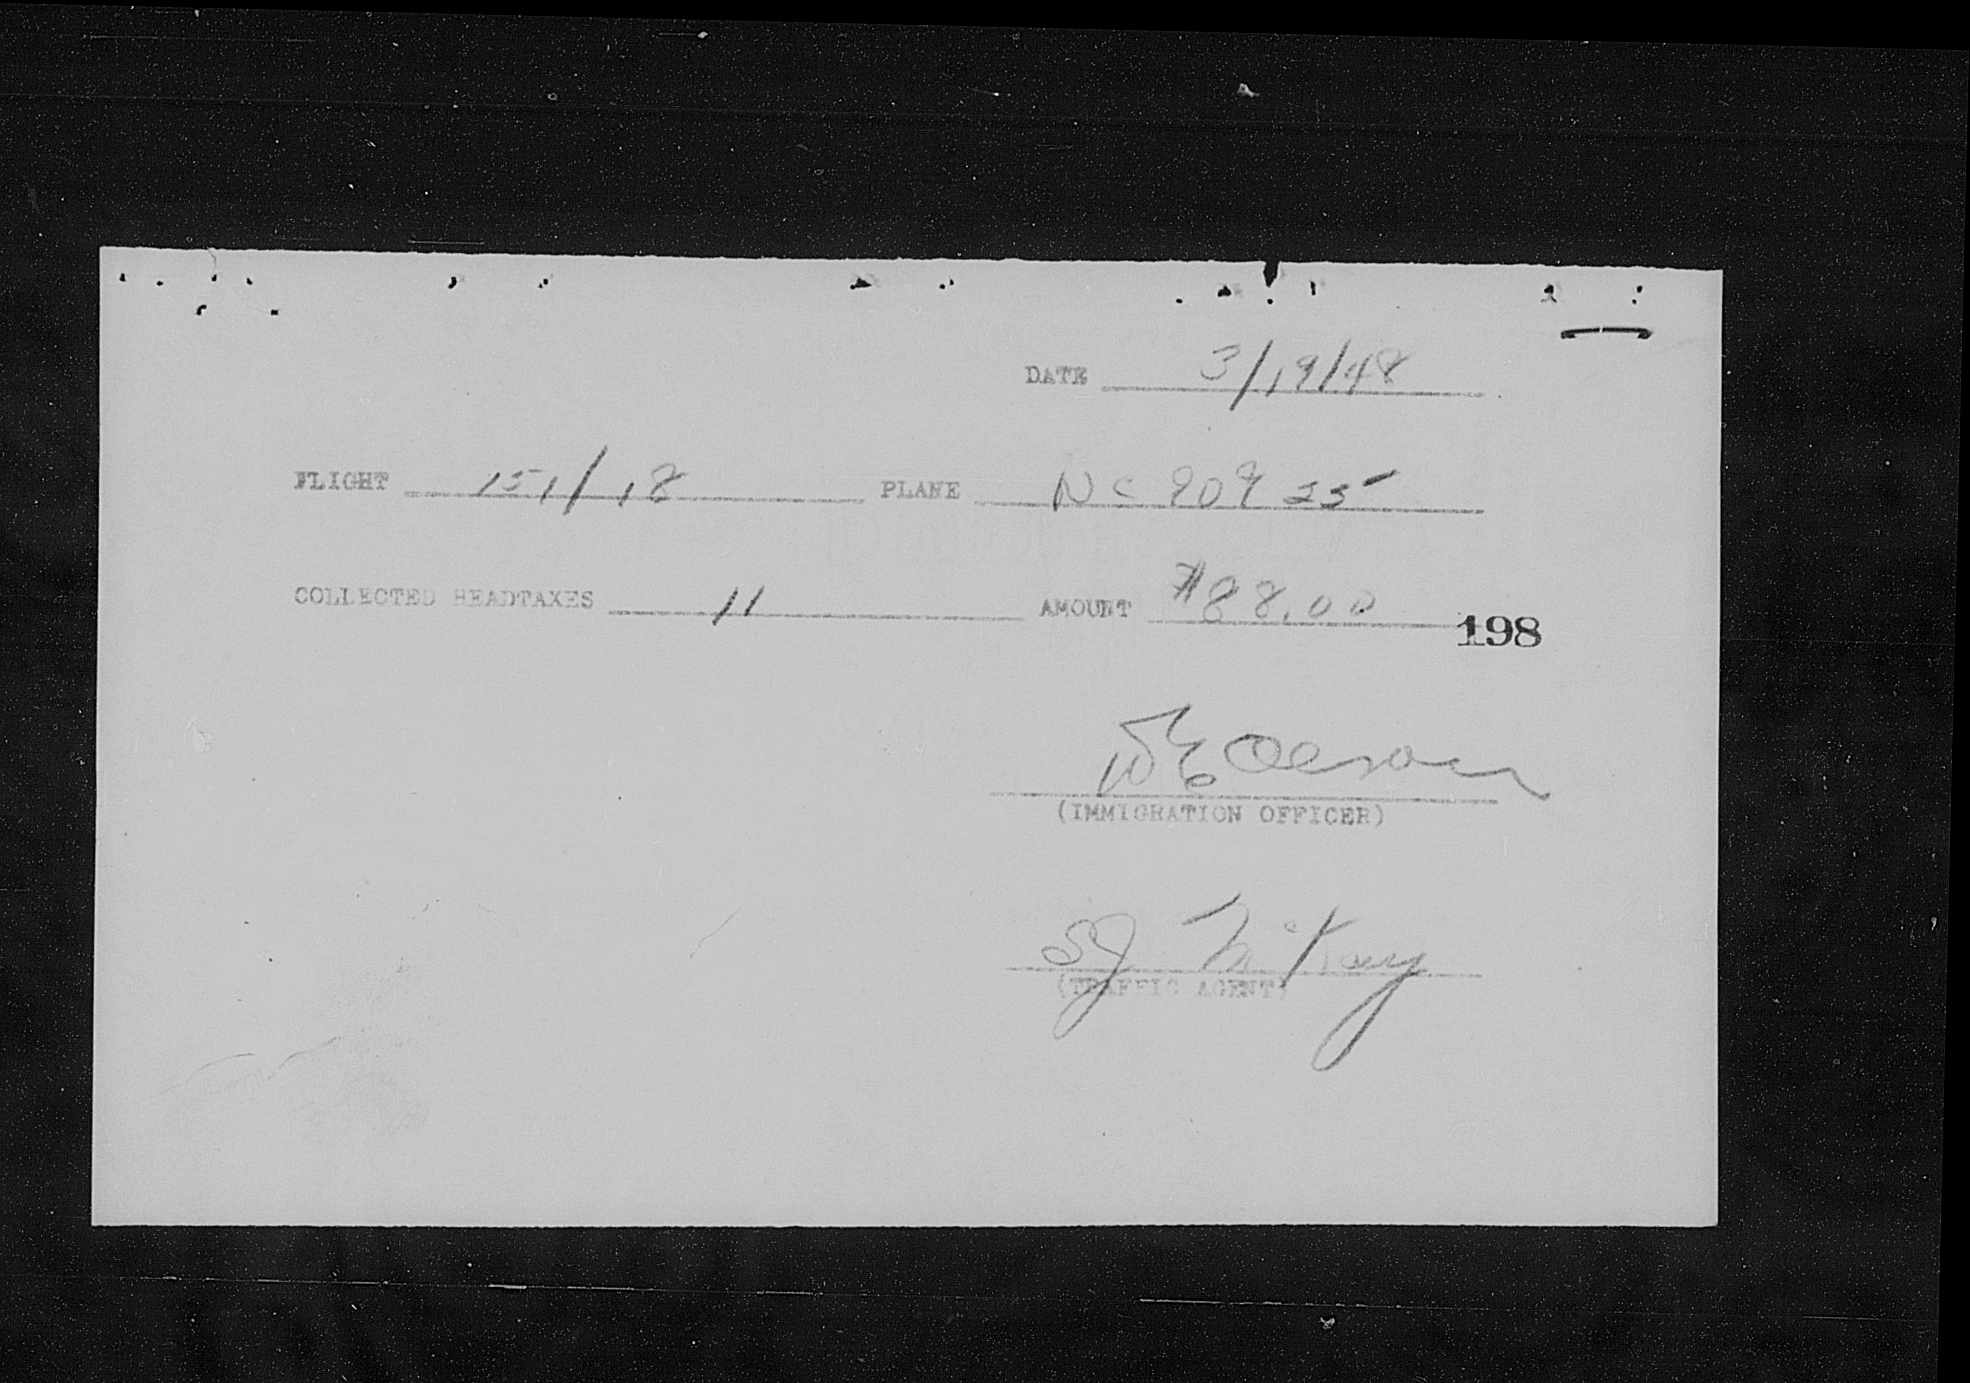 DATE 3/19/48
FLIGHT 151/18 PLANE NC 90925
COLLECTED HEADTAXES 11 AMOUNT $88.00
198
Olson
(IMMIGRATION OFFICER)
SJ McKay
(TRAFFIC AGENT)